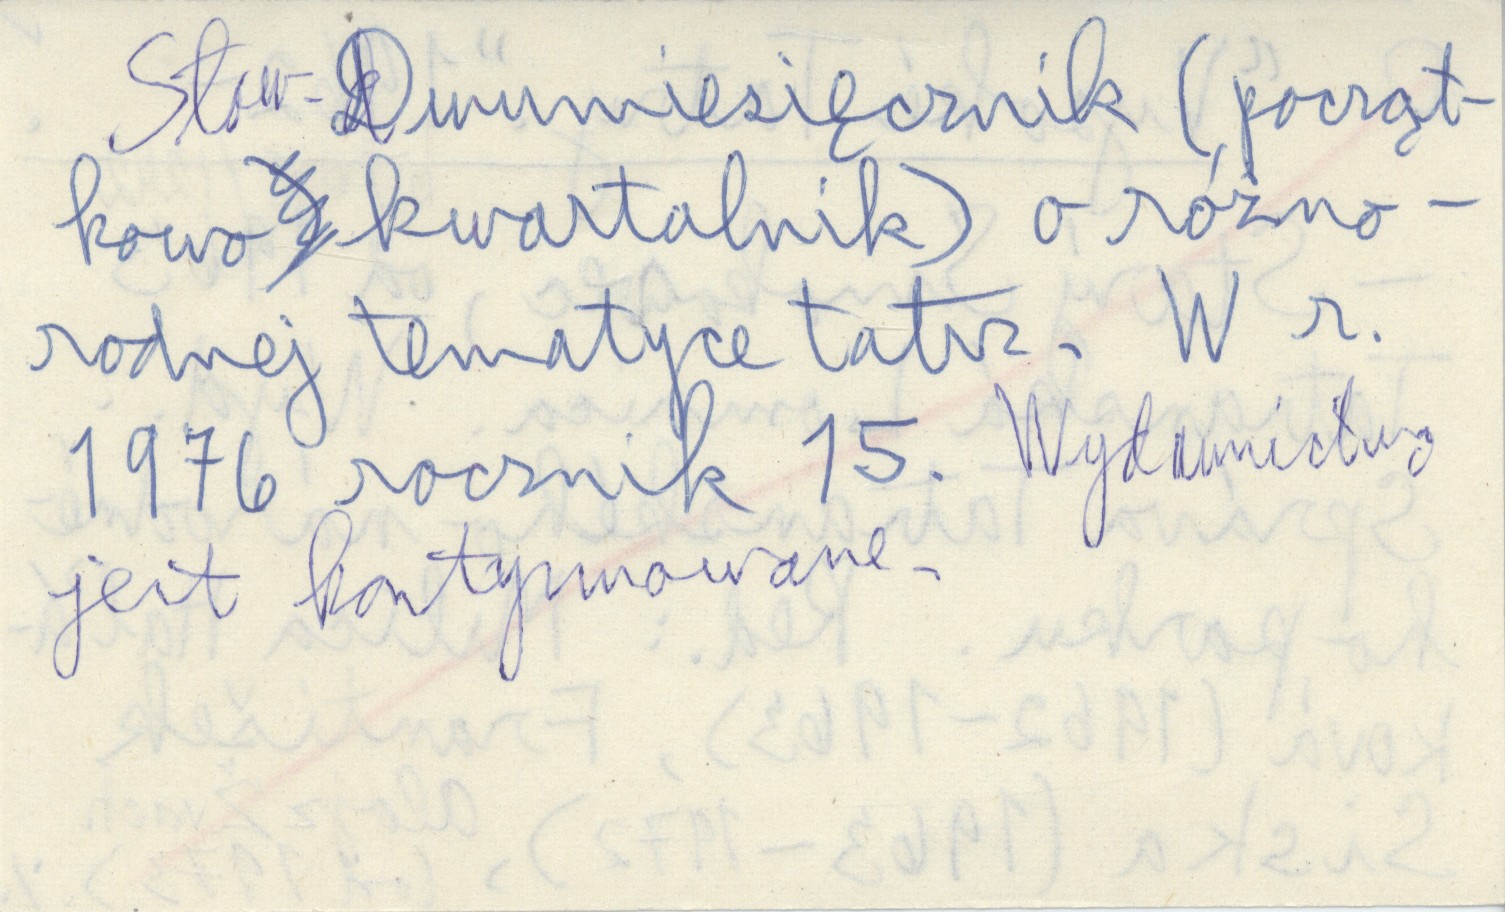 Słow. Dwumiesięcznik (począt-
kowo kwartalnik) o różno-
rodnej tematyce tatrz. W r.
1976 rocznik 15. Wydawnictwo
jest kontynuowane.